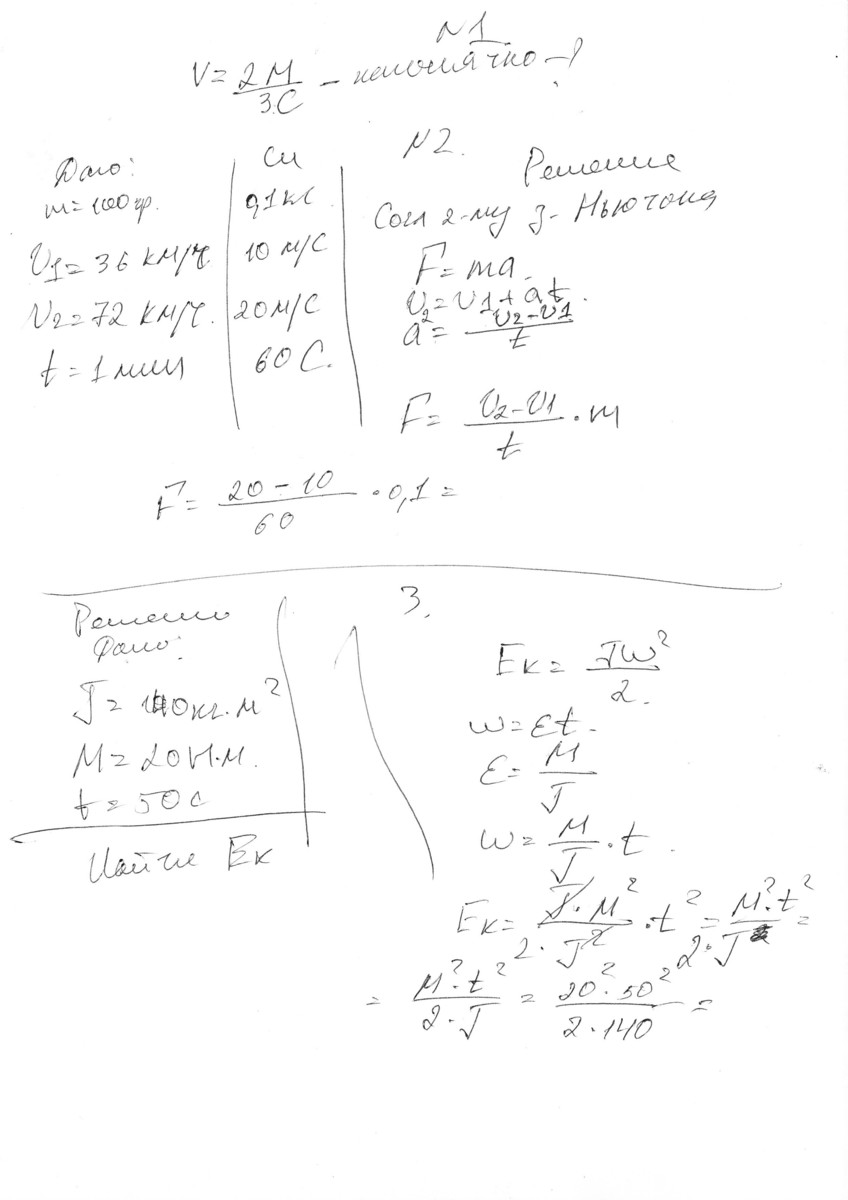 N1
V = 2м/3с – непонятно – ?
N2.
Дано:
m = 100 гр.
V1 = 36 км/ч.
V2 = 72 км/ч.
t = 1 мин
Си
0,1 кг
10 м/с
20 м/с
60 с.
Решение
Согл 2-му з- Ньютона
F = ma.
V2 = V1 + at.
a = (V2 – V1)/t
F = (V2 – V1)/t · m
F = (20 – 10)/60 · 0,1 =
3.
Решено
Дано:
M = 20 Н·м.
t = 50 с
Найти Eк
Eк = Jω²/2.
ω = εt.
ε = M/J
ω = M/J · t.
Eк = J·M²/2·J² · t² = M²·t²/2·J =
= M²·t²/2·J = 20²·50²/2·140 =